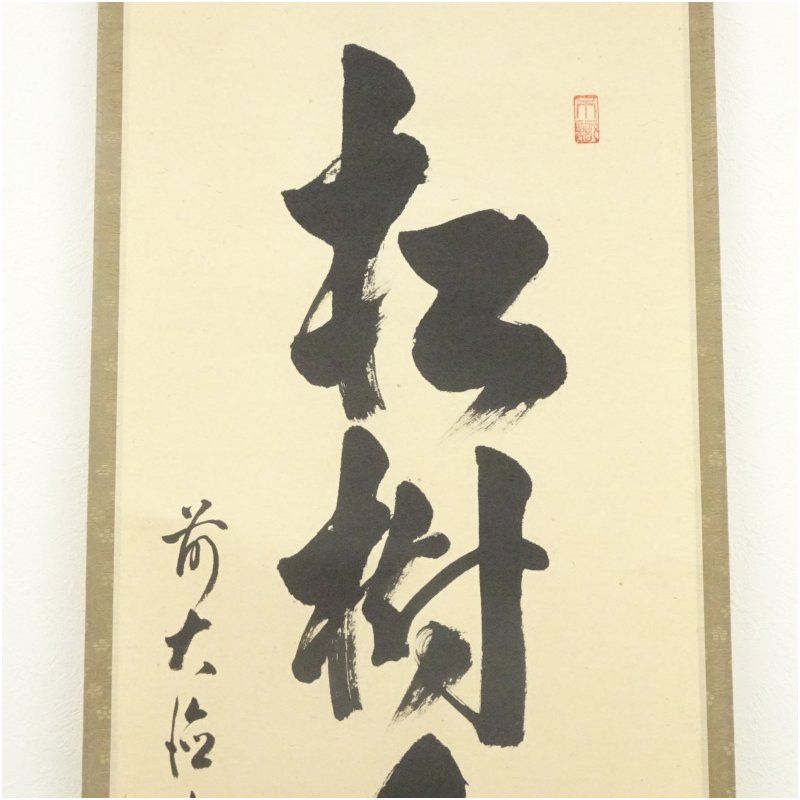 松樹
前大徳